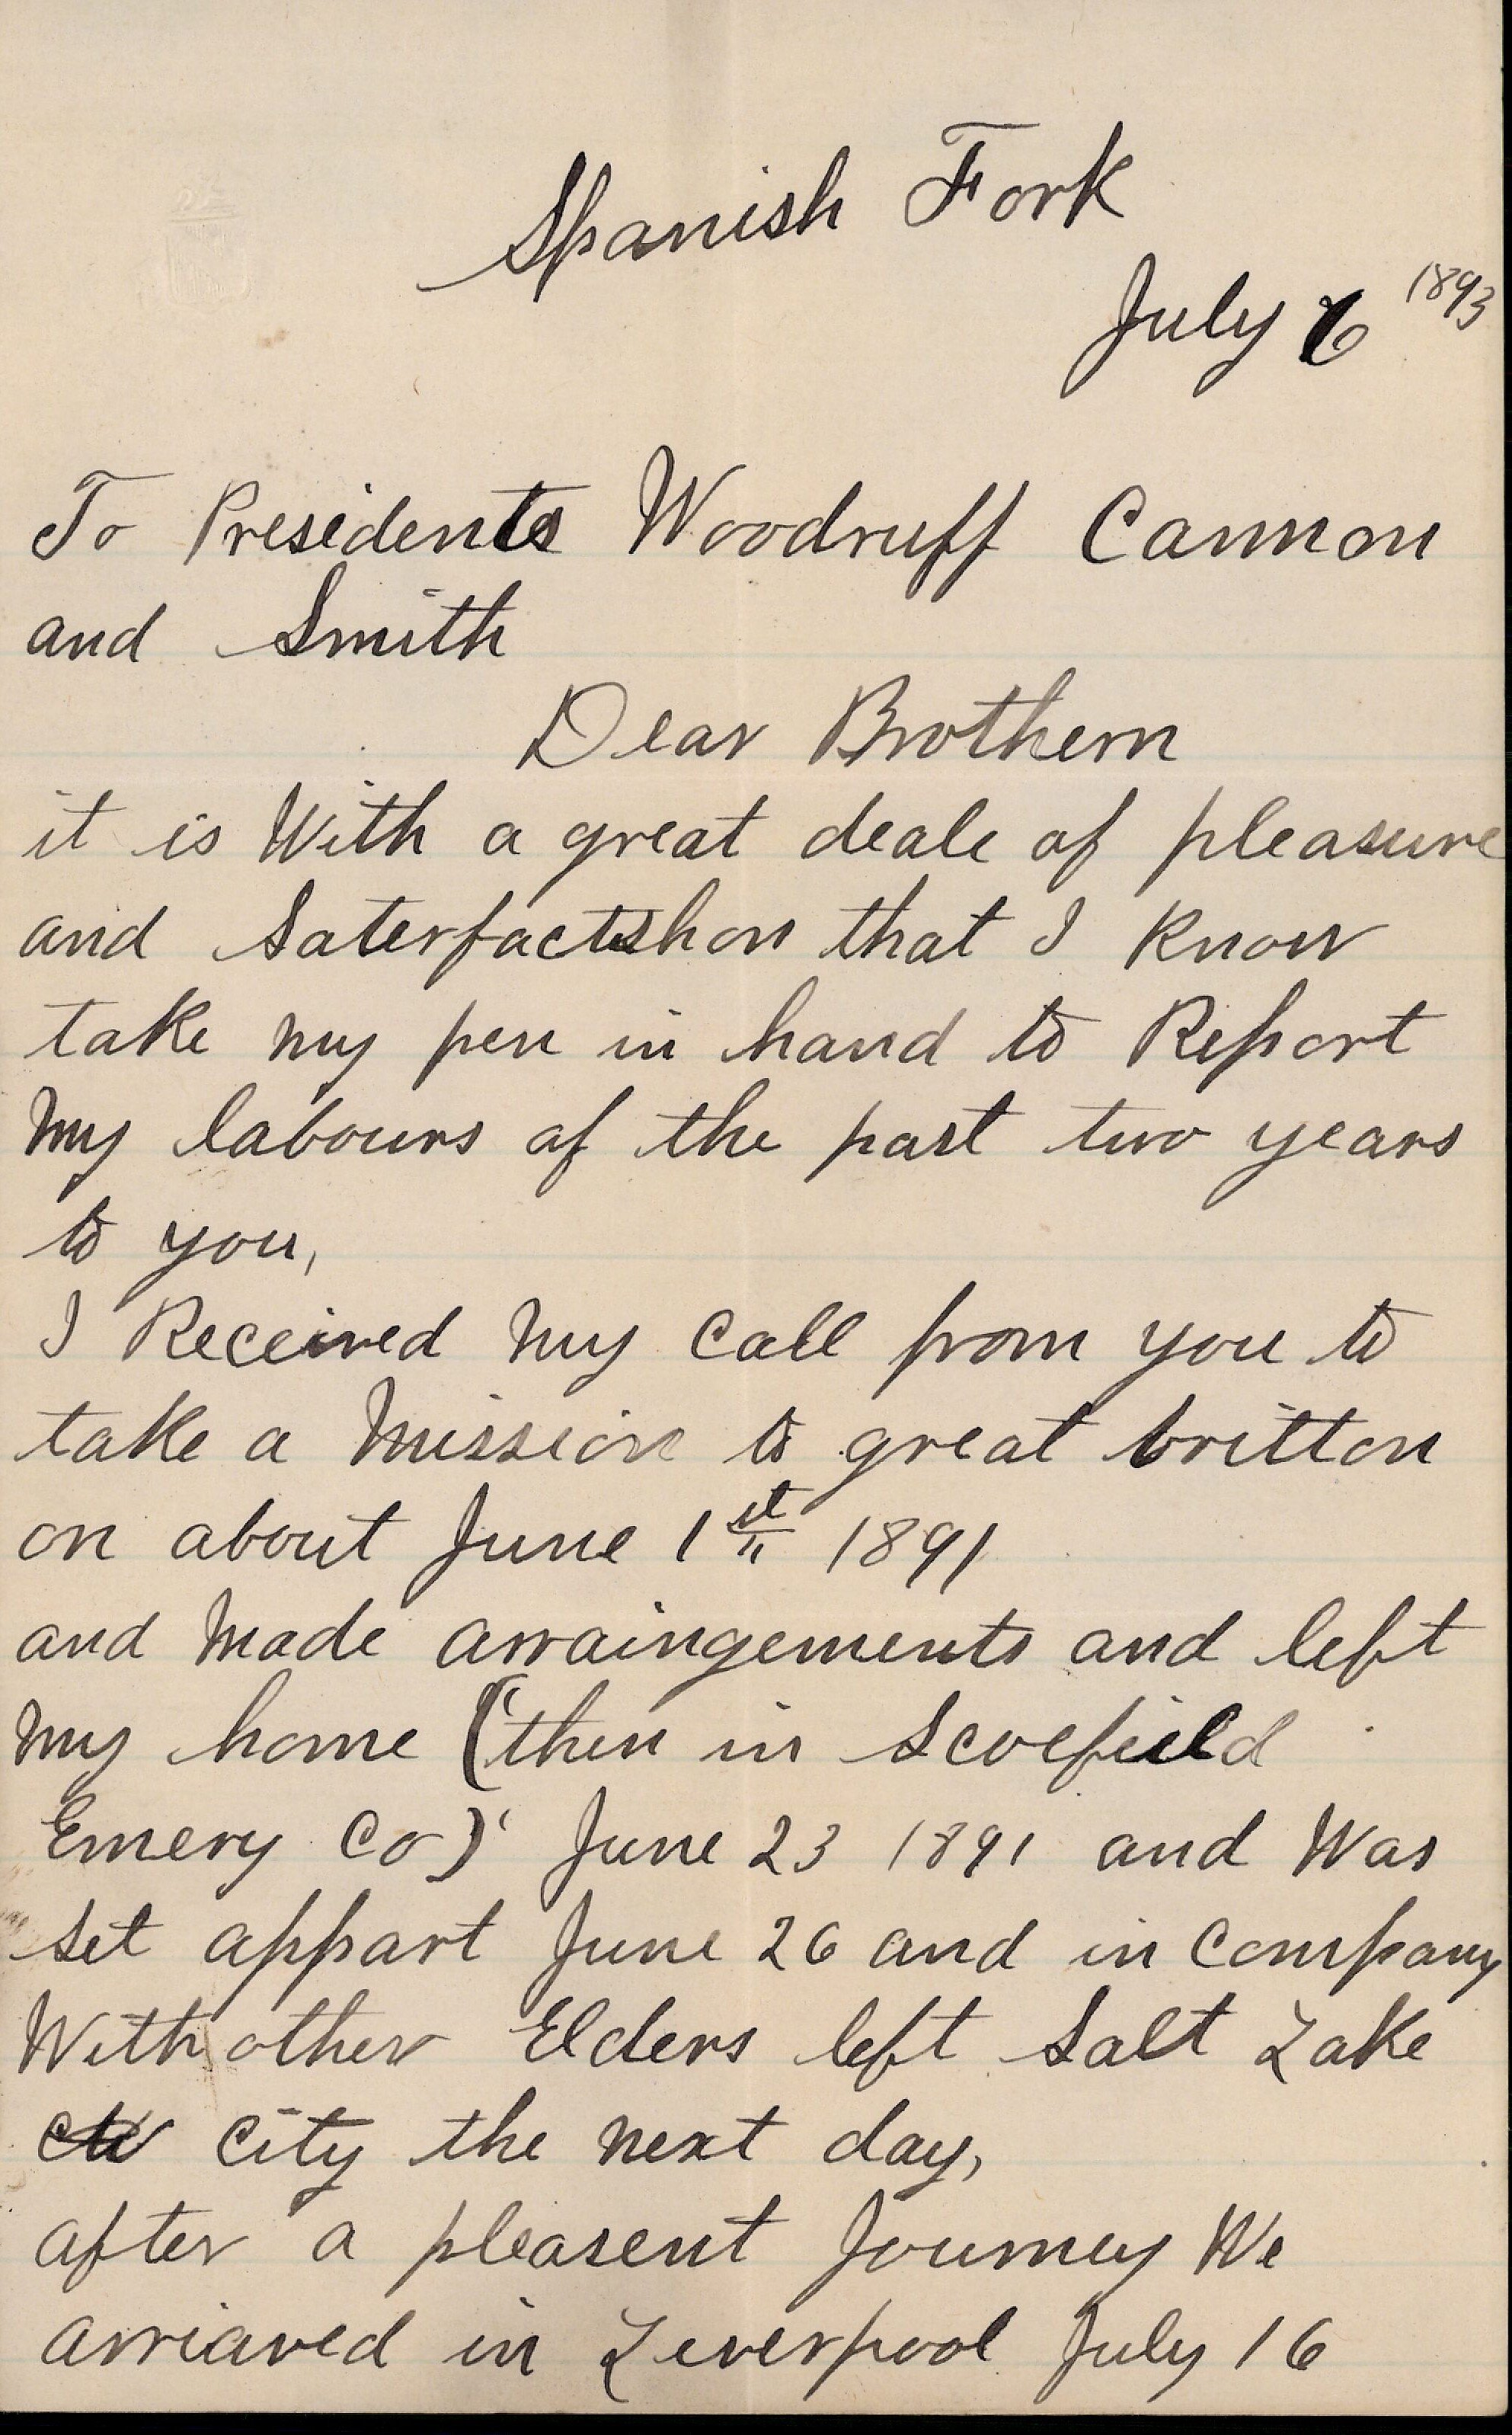 Spanish Fork
July 6 1893
To Presidents Woodruff Cannon
and Smith
Dear Brothern
it is With a great deale of pleasure
and Saterfactshon that I know
take my pen in hand to Report
My labours of the past two years
to you,
I Received My Call from you to
take a Mission to great britton
on about June 1st 1891
and Made arraingements and left
My home (then in Scoefield
Emery Co) June 23 1891 and Was
set appart June 26 and in Company
With other Elders left Salt Lake
City the Next day,
after a pleasent Journey We
arriaved in Leverpool July 16